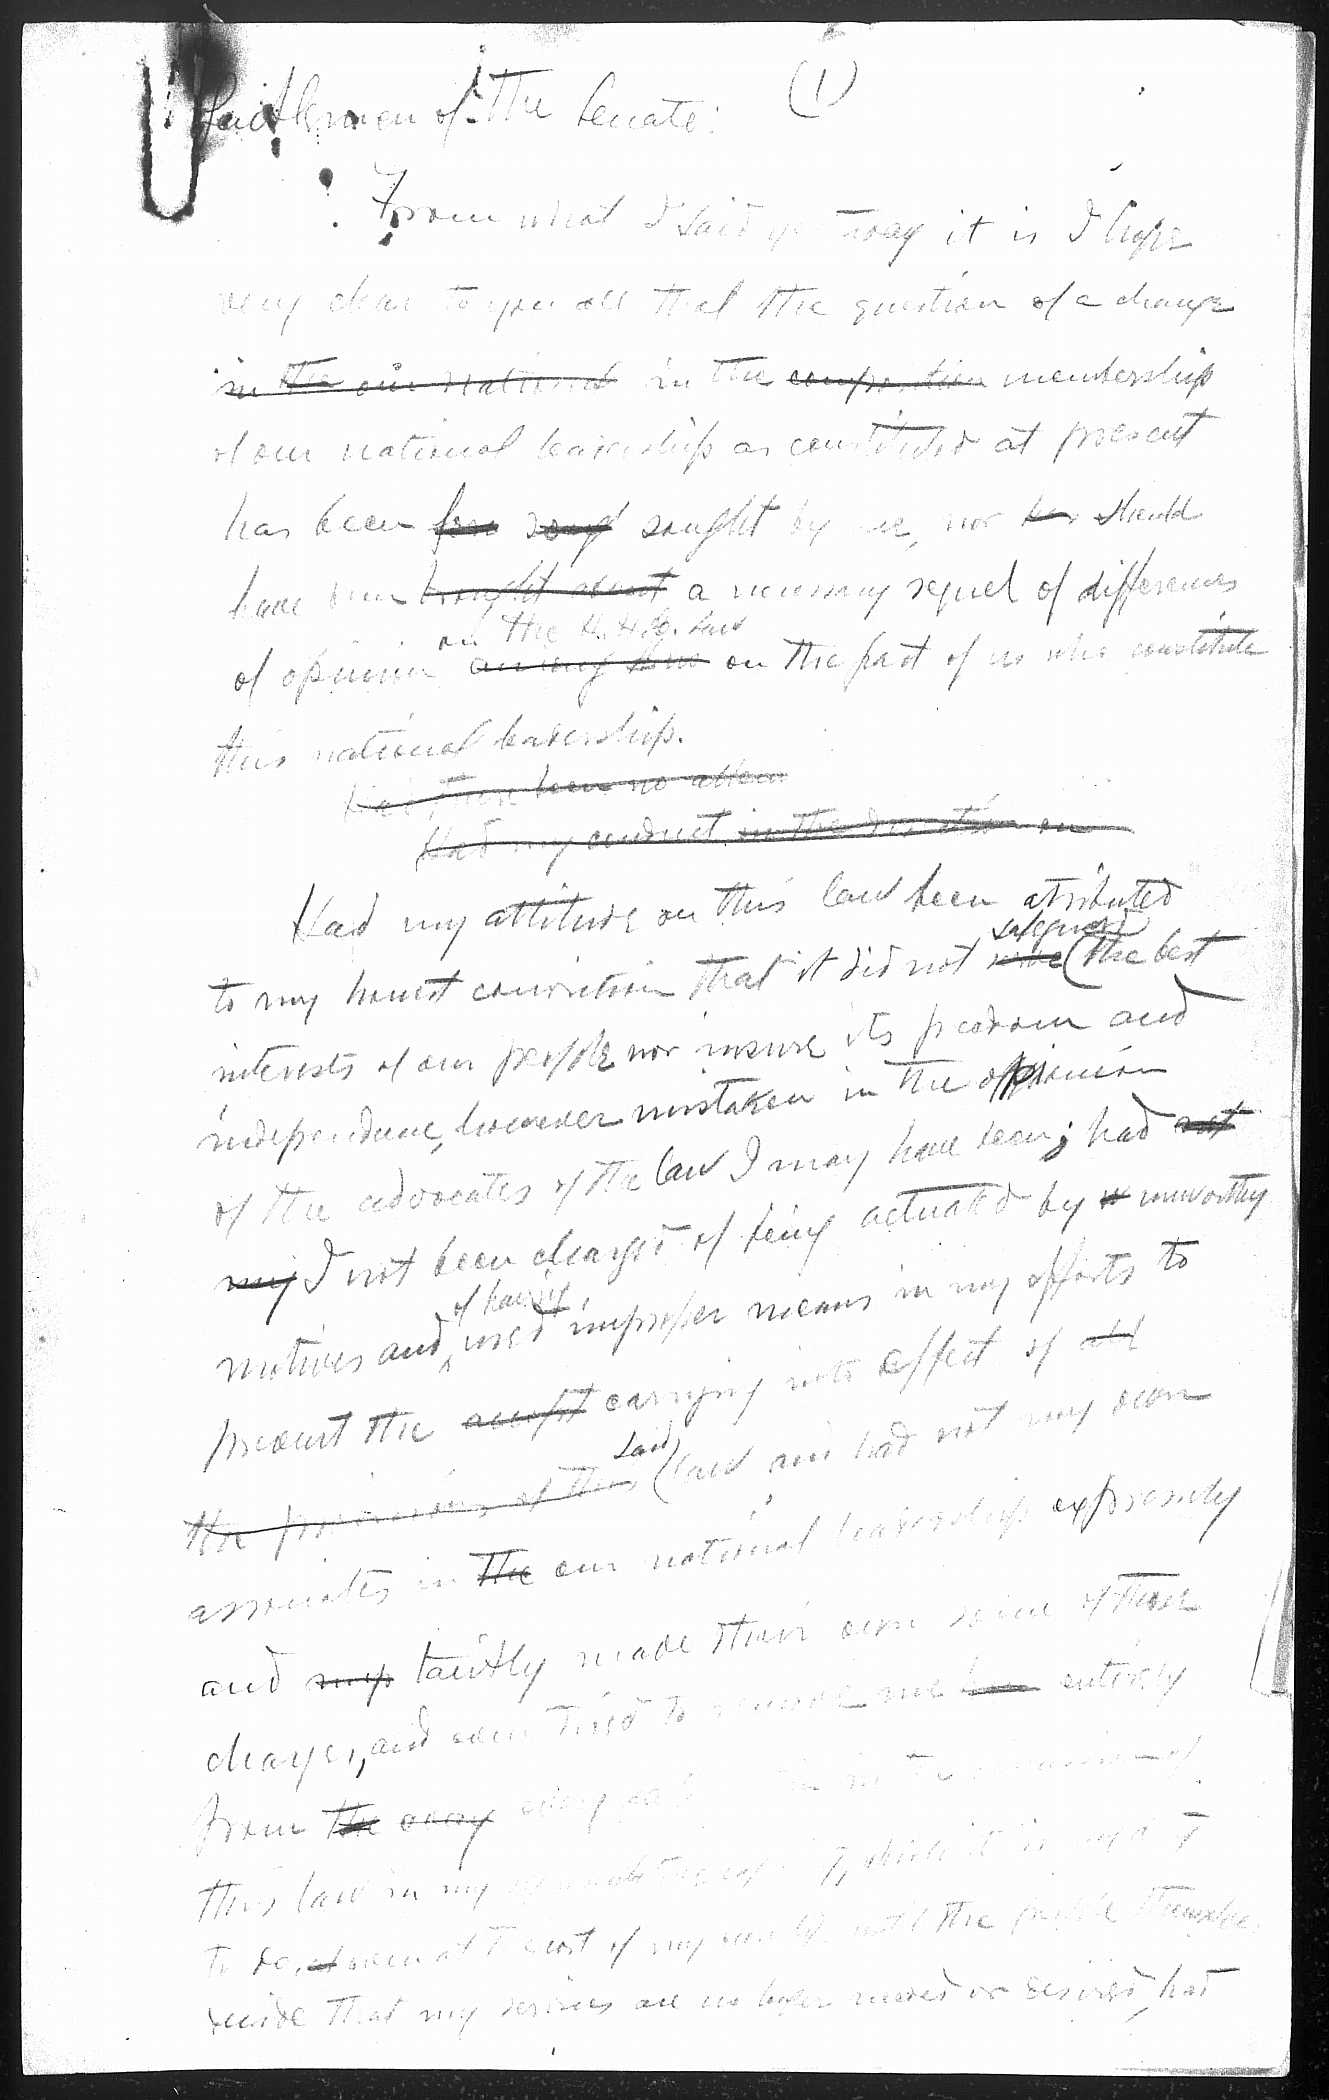 (1)
Gentlemen of the Senate:
From what I said yesterday it is I hope
very clear to you all that the question of a change
in the our national in the composition membership
of our national leadership as constituted at present
has been for soug sought by me, nor has should
have been brought about a necessary sequel of differences
on the H. H. C. Law
of opinion among them on the part of us who constitute
this national leadership.
Had there been no attem
Had my conduct in the direction on
Had my attitude on this law been atributed
safeguard
to my honest conviction that it did not (the best
interests of our people nor insure its freedom and
independence, however mistaken in the opinion
of the advocates of the law I may have been; had not
my I not been charged of being actuated by unworthy
of having
motives and used improper means in my efforts to
prevent the accept carrying into effect of all
said
the provisions of this (law and had not my own
associates in the our national leadership expressly
and tacitly made their own some of those
charges, and even tried to remove me entirely
from the every every
this law in my while it is my
to do, even at the cost of my until the people themselves
decide that my services are no longer needed or desired, had